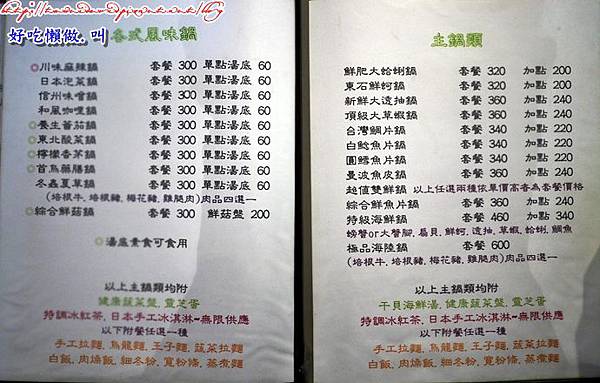 好吃懶做.叫
各式風味鍋
◎川味麻辣鍋 套餐 300 單點湯底 60
日本泡菜鍋 套餐 300 單點湯底 60
信州味噌鍋 套餐 300 單點湯底 60
和風咖哩鍋 套餐 300 單點湯底 60
◎養生蕃茄鍋 套餐 300 單點湯底 60
◎東北酸菜鍋 套餐 300 單點湯底 60
◎檸檬香茅鍋 套餐 300 單點湯底 60
◎首烏藥膳鍋 套餐 300 單點湯底 60
冬蟲夏草鍋 套餐 300 單點湯底 60
(培根牛,培根豬,梅花豬,雞腿肉)肉品四選一
◎綜合鮮菇鍋 套餐 300 鮮菇盤 200
◎湯底素食可食用
以上主鍋類均附
健康蔬菜盤,靈芝蛋
特調冰紅茶,日本手工冰淇淋~無限供應
以下附餐任選一種
手工拉麵,烏龍麵,王子麵,蔬菜拉麵
白飯,肉燥飯,細冬粉,寬粉條,蒸煮麵
主鍋類
鮮肥大蛤蜊鍋 套餐 320 加點 200
東石鮮蚵鍋 套餐 320 加點 200
新鮮大透抽鍋 套餐 360 加點 240
頂級大草蝦鍋 套餐 360 加點 240
台灣鯛片鍋 套餐 340 加點 220
白鯰魚片鍋 套餐 340 加點 220
圓鱈魚片鍋 套餐 340 加點 220
曼波魚皮鍋 套餐 360 加點 240
超值雙鮮鍋 以上任選兩種依單價高者為套餐價格
綜合鮮魚片鍋 套餐 360 加點 240
特級海鮮鍋 套餐 460 加點 340
螃蟹or大蟹腳,扇貝,鮮蚵,透抽,草蝦,蛤蜊,鯛魚
極品海陸鍋 套餐 600
(培根牛,培根豬,梅花豬,雞腿肉)肉品四選一
以上主鍋類均附
干貝海鮮湯,健康蔬菜盤,靈芝蛋
特調冰紅茶,日本手工冰淇淋~無限供應
以下附餐任選一種
手工拉麵,烏龍麵,王子麵,蔬菜拉麵
白飯,肉燥飯,細冬粉,寬粉條,蒸煮麵